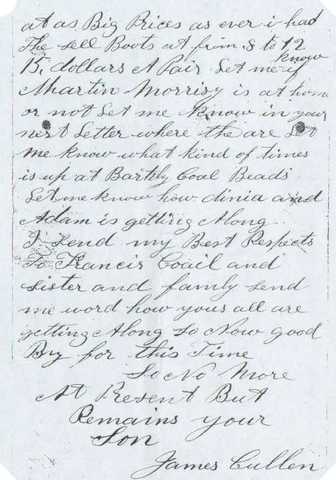 at as Big Prices as ever i had
The sell Boots at from 8 to 12
15, dollars A Pair Let me know if
Martin Morrisy is at home
or not Let me know in your
next Letter where the are Let
me know what kind of times
is up at Bartly Coal Beads
Let me know how dinia and
Adam is getting Along
I send my Best Respects
To Francis Coail and
sister and family send
me word how yous all are
getting Along So Now good
By for this Time
So No More
At Present But
Remains your
Son
James Cullen